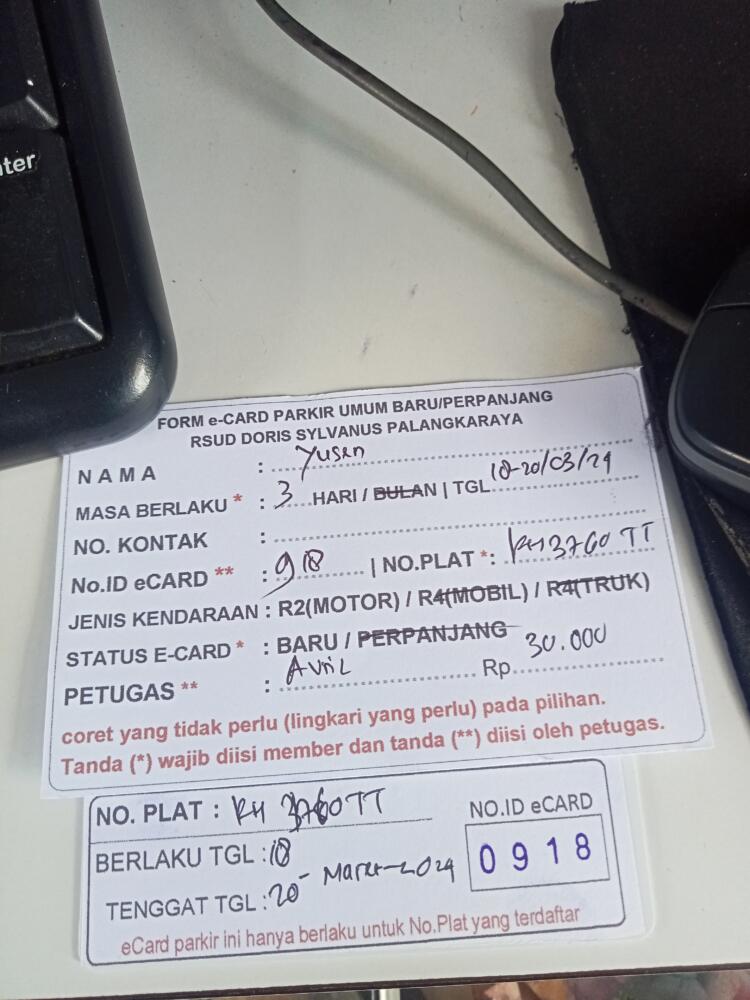 nter
FORM e-CARD PARKIR UMUM BARU/PERPANJANG
RSUD DORIS SYLVANUS PALANGKARAYA
NAMA : Yusen
MASA BERLAKU * : 3 HARI / BULAN | TGL 18-20/03/24
NO. KONTAK :
No.ID eCARD ** : 918 | NO.PLAT *: KH 3760 TT
JENIS KENDARAAN : R2(MOTOR) / R4(MOBIL) / R4(TRUK)
STATUS E-CARD * : BARU / PERPANJANG
PETUGAS ** : Avril Rp 30.000
coret yang tidak perlu (lingkari yang perlu) pada pilihan.
Tanda (*) wajib diisi member dan tanda (**) diisi oleh petugas.
NO. PLAT : KH 3760 TT
NO.ID eCARD
BERLAKU TGL : 18
0918
TENGGAT TGL : 20 - Maret - 2024
eCard parkir ini hanya berlaku untuk No.Plat yang terdaftar